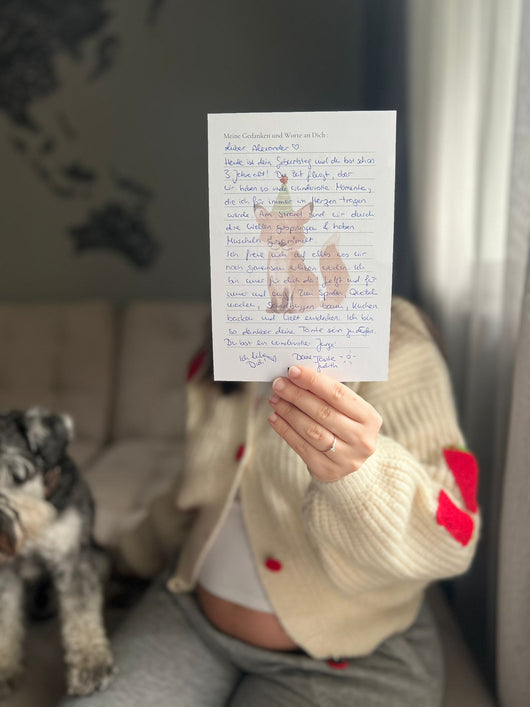 Meine Gedanken und Worte an Dich:
Lieber Alexander ♡
Heute ist dein Geburtstag und du bist schon
3 Jahre alt! Die Zeit fliegt, aber
wir haben so viele wundervolle Momente,
die ich für immer im Herzen tragen
werde. Am Strand sind wir durch
die Wellen gesprungen & haben
Muscheln gesammelt.
Ich freue mich auf alles was wir
noch gemeinsam erleben werden. Ich
bin immer für dich da. Jetzt und für
immer und ewig. Zum Spielen, Quatsch
machen, bauen, Kuchen
backen und Welt entdecken. Ich bin
so dankbar deine Tante sein zu dürfen.
Du bist ein wundervoller Junge.
Ich liebe Deine Tante
Dich Judith